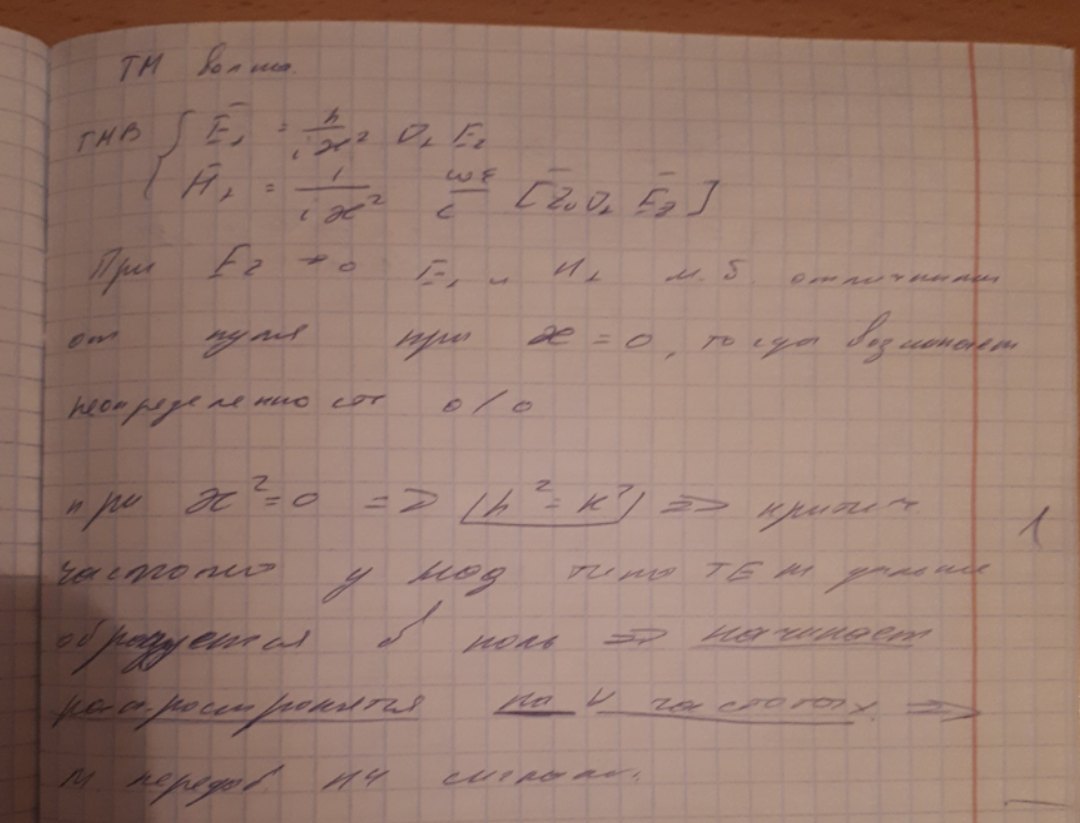 ТМ волна
ТМВ { Ē⊥ = h/(iæ²) ∇⊥ Ez
H̄⊥ = 1/(iæ²) ωε/c [z̄₀ ∇⊥ Ēz]
При Ez → 0 Ē⊥ и H⊥ м.б. отличными
от нуля при æ = 0, тогда возникает
неопределенность 0/0
при æ² = 0 => (h² = k²) => критич.
частота у мод типа ТЕМ
обращается в ноль => начинает
распространятся на ∀ частотах =>
передав. НЧ сигналы.